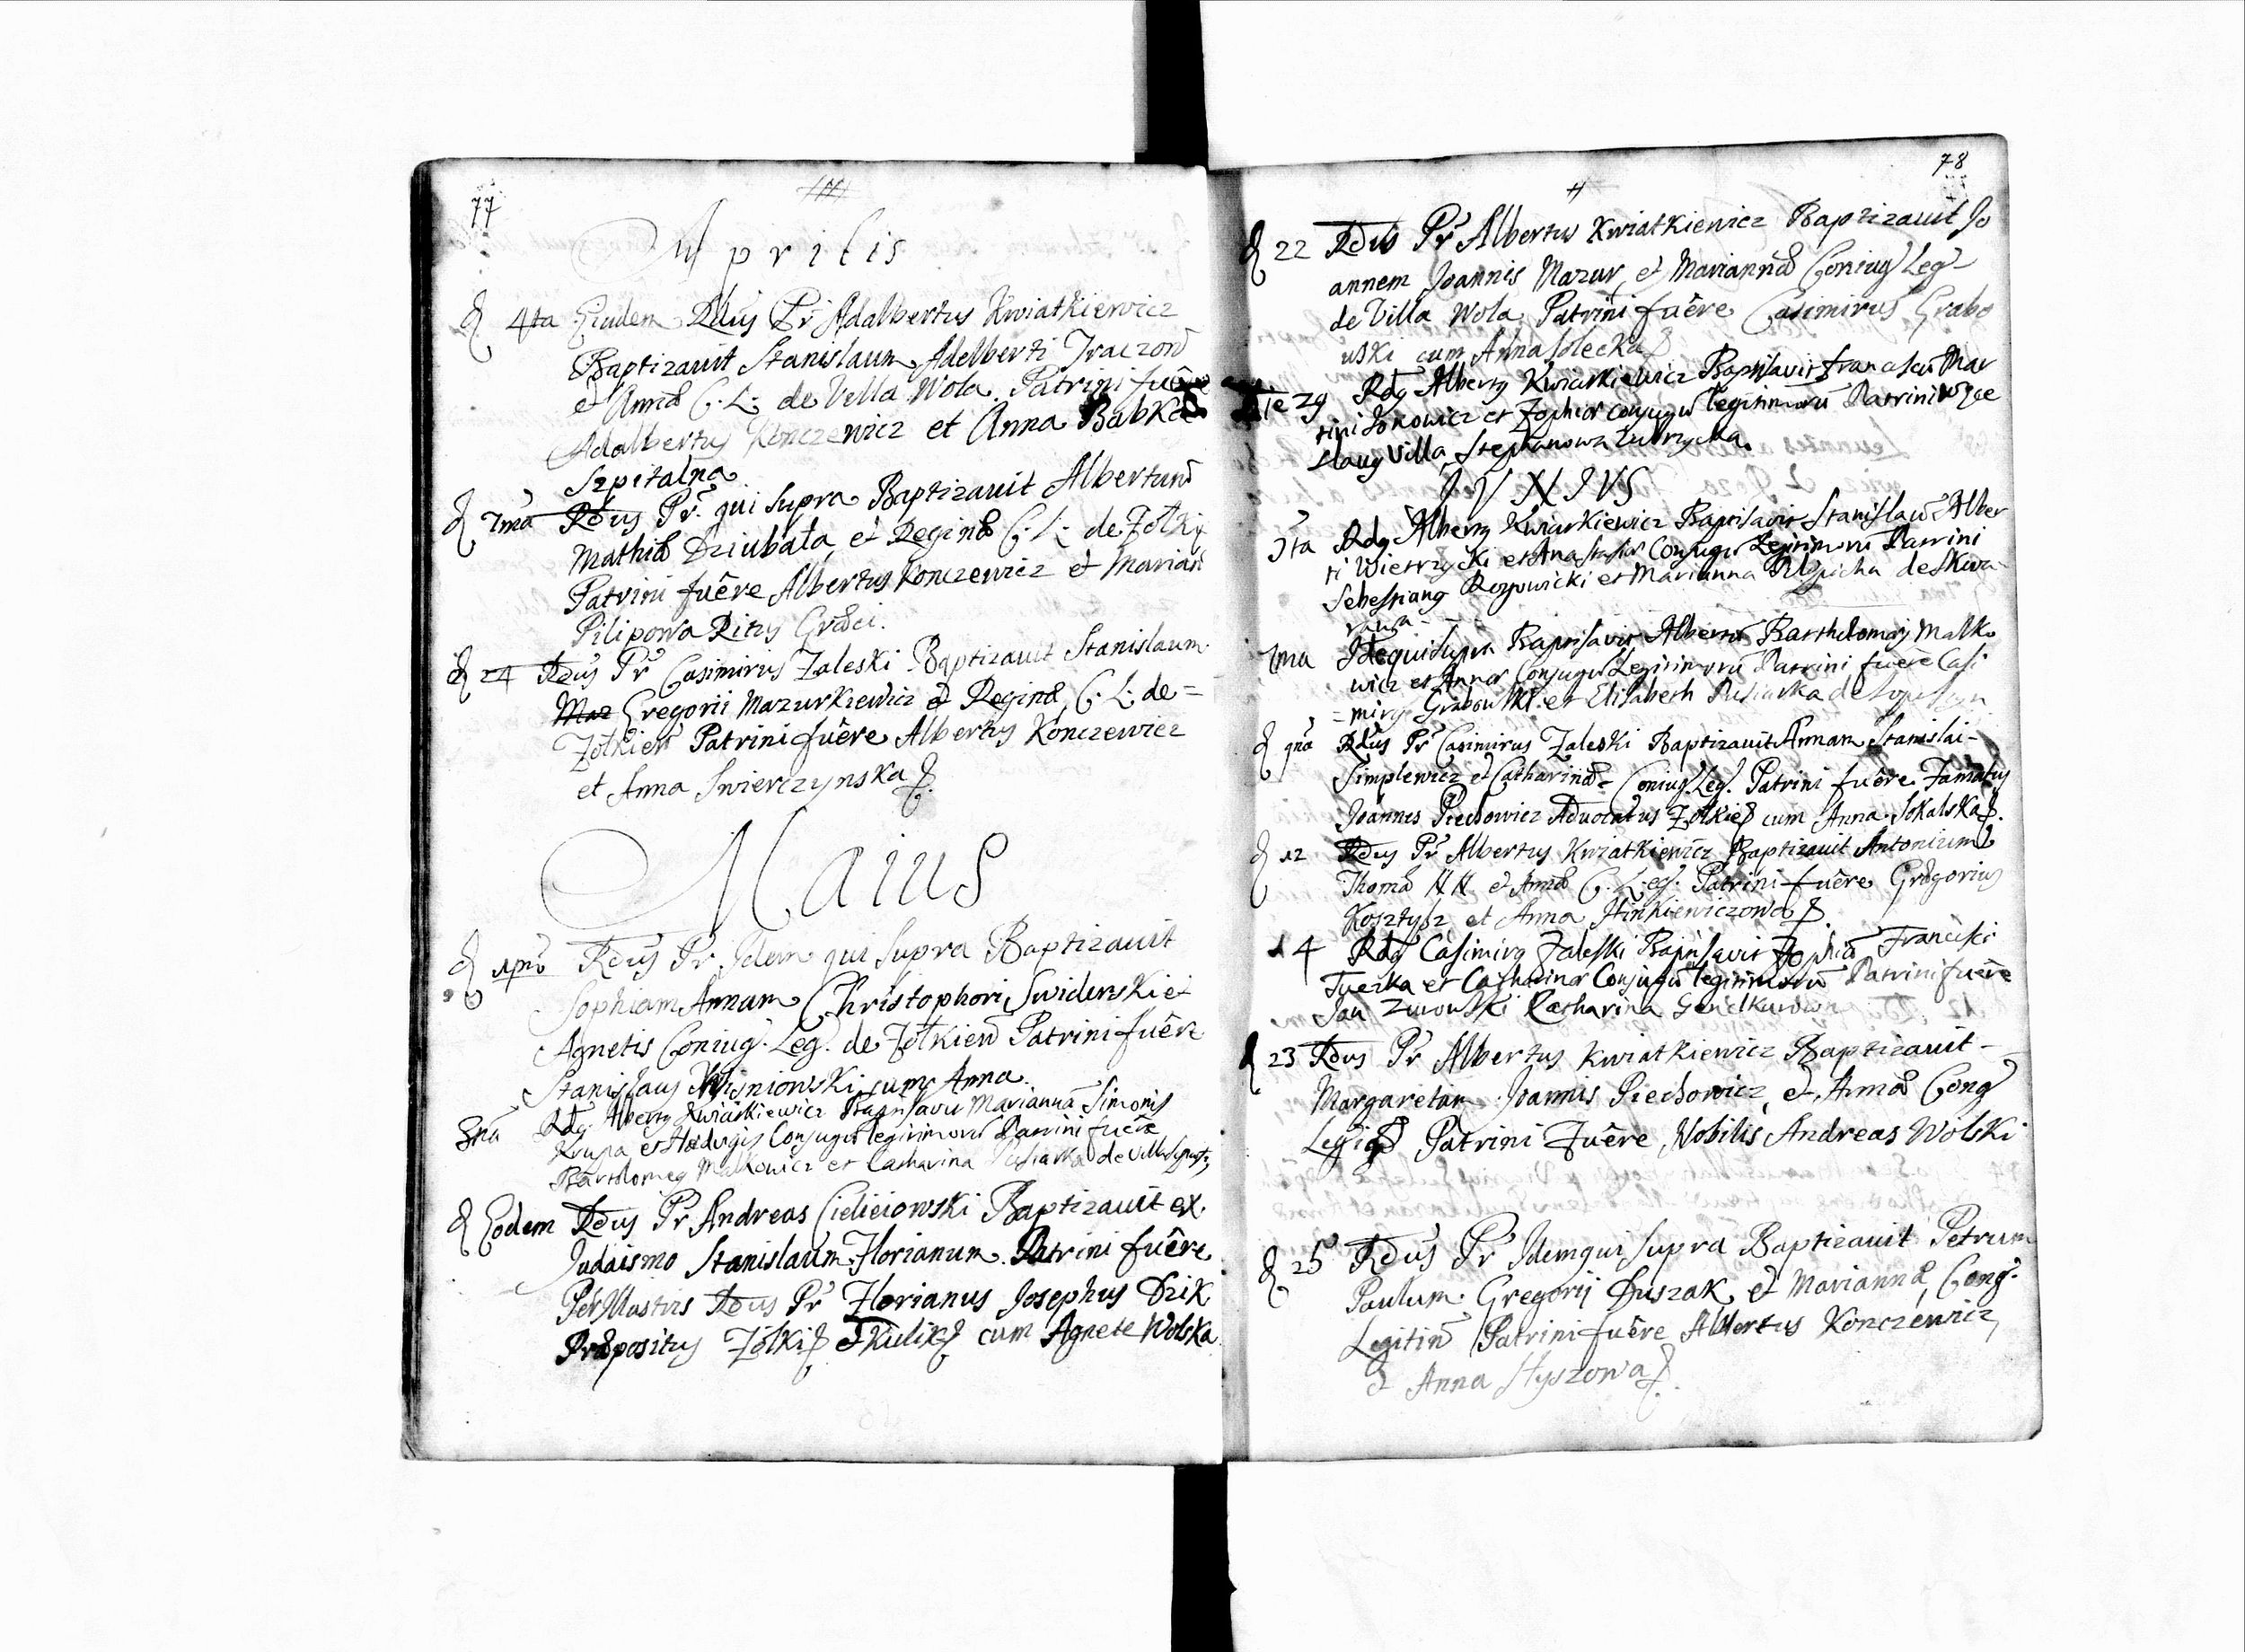 77
Aprilis
d 4ta Eiudem Rdus Pr Adalbertus Kwiatkiewicz
Baptizauit Stanislaum Adelberti Traczon
et Annæ C. L. de Vella Wola Patrini fuêre
Adalbertus Konczewicz et Anna Babka
Szpitalna
d 7ma Rdus Pr. qui supra Baptizauit Albertum
Mathiæ Dziubata et Reginæ C. L. de Zołkiy
Patrini fuêre Albertus Konczewicz et Marian
Pilipowa Ritus Græci.
d 24 Rdus Pr Casimirus Zaleski Baptizauit Stanislaum
Maz Gregorii Mazurkiewicz et Reginæ C. L. de =
Zołkiew Patrini fuêre Albertus Konczewicz
et Anna Swierczynska
Maius
d 1ma Rdus Pr Idem qui supra Baptizauit
Sophiam Annam Christophori Swiderski et
Agnetis Coniug. Leg. de Zołkiew Patrini fuêre
Stanislaus Wisniowski cum Anna
8na Rdq Albertq Kwiatkiewicz Baptisavit Mariannā Simonis
Krupa et Hedvigis Conjugū legitimorū Patrini fuere
Bartolomeq Malkowicz et Catharina de Villa
d Eodem Rdus Pr Andreas Cieliciowski Baptizauit ex
Judaismo Stanislaum Florianum Patrini fuêre
PerIllustris Rdus Pr Florianus Josephus Dzik
Præpositus Zołkie Kulik cum Agnete Wolska
78
d 22 Rdus Pr Albertus Kwiatkiewicz Baptizauit Jo
annem Joannis Mazur, et Mariannæ Coniug Leg
de Villa Wola Patrini fuêre Casimirus Grabo
uski cum Anna Solecka
die 29 Rdq Albertq Kwiatkiewicz Baptisavit Mar
tini et Zophiæ conjugū legitimorū Patrini Wæ
slaug Villa, Stephanowa
JVNIVS
3ta Rdq Albertq Kwiatkiewicz Baptisavit Stanislaū Alber
ti Wietrzycki et Anastasiæ Conjugū Legitimorū Patrini
Sebestianq Rozowicki et Marianna de Skwa-
rzawa - - -
7ma Idē qui supra Baptisavit Albertū Barthelomæj Malko
wicz et Annæ Conjugū Legitimorū Patrini fuere Casi
= mirq Grabowski et Elisabeth Pusiarka de
d 9na Rdus Pr Casimirus Zaleski Baptizauit Annam Stanislai
Simplewicz et Catharinæ Coniug. Leg. Patrini fuêre Famatus
Joannes Piechowicz Aduocatus Zołkie cum Anna Sokalska
d 12 Rdus Pr Albertus Kwiatkiewicz Baptizauit Antonium
Thomæ NN et Annæ C. Leg. Patrini fuêre Gregorius
Kosztysz et Anna Hinkiewiczowa
14 Rdq Casimirq Zaleski Baptisavit Zophiā Francisci
Tuczka et Catharinæ Conjugū legitimorū Patrini fuere
Jan Zurowski Catharina
d 23 Rdus Pr Albertus Kwiatkiewicz Baptizauit
Margaretam Joannis Piechowicz, et Annæ Cong
Patrini Fuêre Nobilis Andreas Wolski
d 25 Rdus Pr Idem qui supra Baptizauit Petrum
Paulum Gregorij Duszak et Mariannæ Cong.
Legitim Patrini fuêre Albertus Konczewicz
et Anna Hyszowa